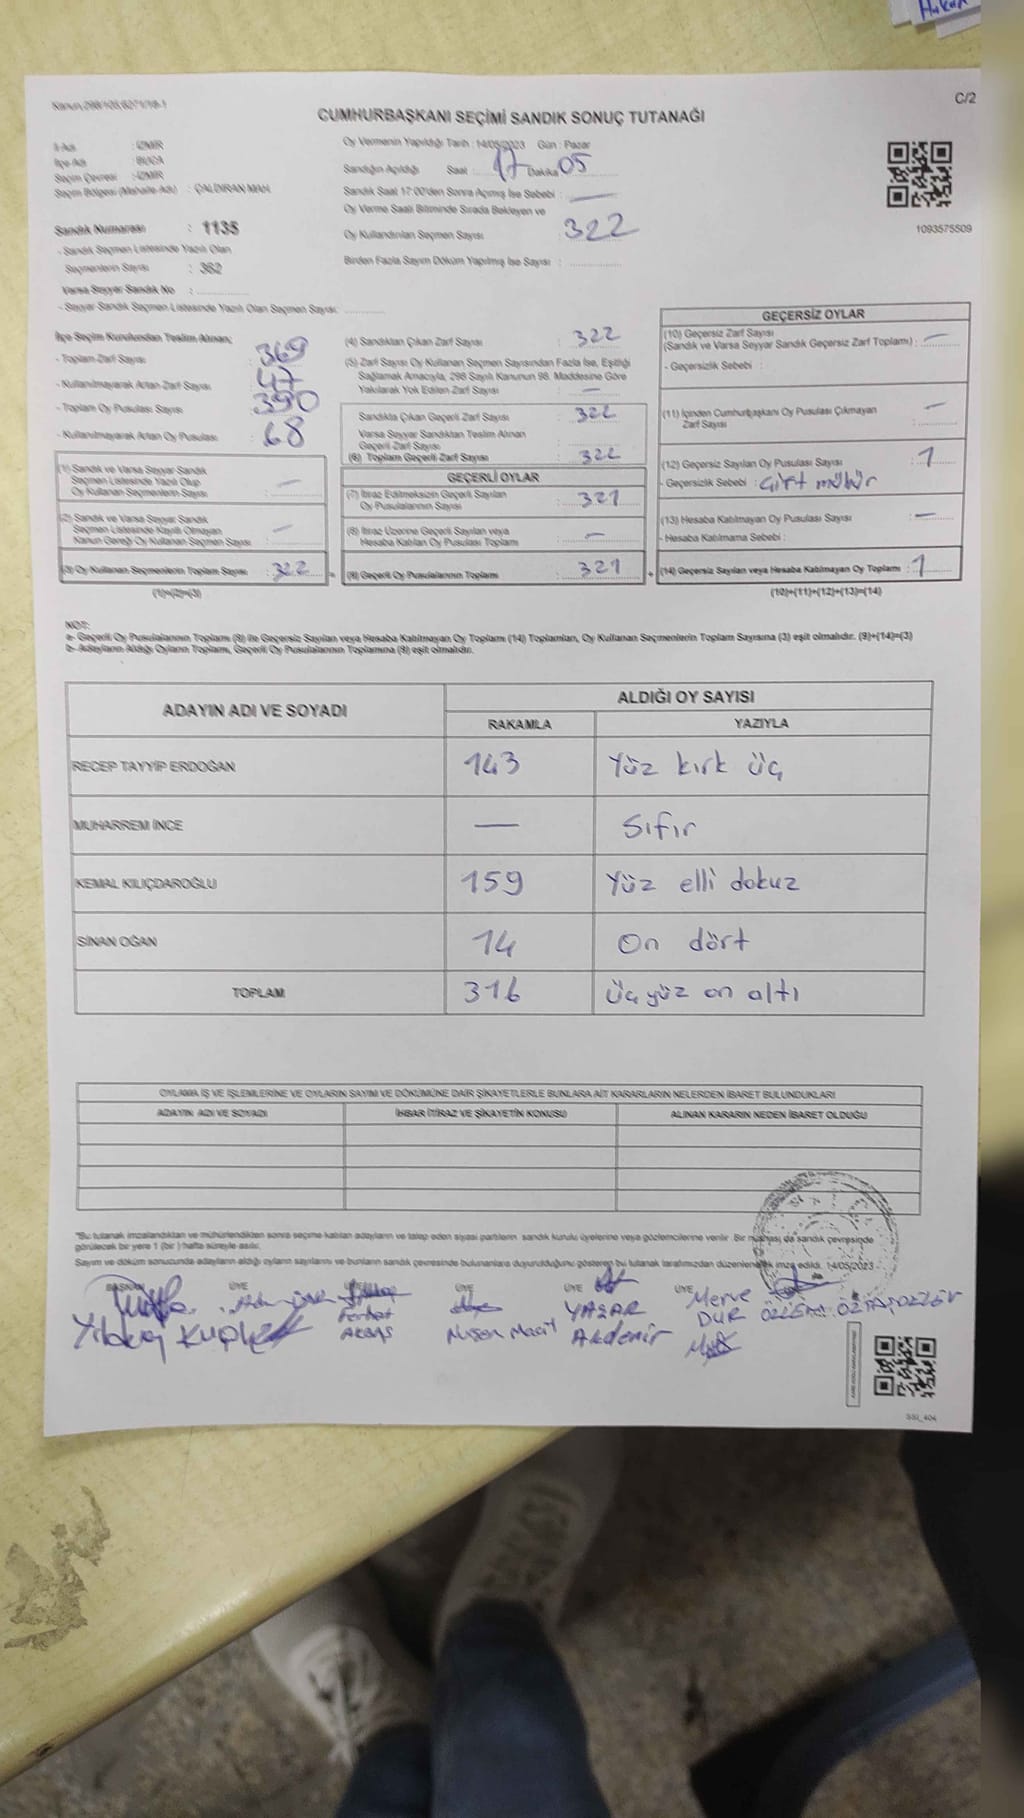 Hakan
Kanun 298/105,6271/18-1
C/2
CUMHURBAŞKANI SEÇİMİ SANDIK SONUÇ TUTANAĞI
İl Adı : İZMİR
İlçe Adı : BUCA
Seçim Çevresi : İZMİR
Seçim Bölgesi (Mahalle Adı) : ÇALDIRAN MAH.
Sandık Numarası : 1135
- Sandık Seçmen Listesinde Yazılı Olan
Seçmenlerin Sayısı : 362
Varsa Seyyar Sandık No :
- Seyyar Sandık Seçmen Listesinde Yazılı Olan Seçmen Sayısı:
Oy Vermenin Yapıldığı Tarih : 14/05/2023 Gün : Pazar
Sandığın Açıldığı Saat : 17 Dakika 05
Sandık Saat 17:00'den Sonra Açımış İse Sebebi : —
Oy Verme Saati Bitiminde Sırada Bekleyen ve
Oy Kullandırılan Seçmen Sayısı : 322
Birden Fazla Sayım Döküm Yapılmış İse Sayısı :
1093575509
İlçe Seçim Kurulundan Teslim Alınan;
- Toplam Zarf Sayısı : 369
- Kullanılmayarak Artan Zarf Sayısı : 47
- Toplam Oy Pusulası Sayısı : 390
- Kullanılmayarak Artan Oy Pusulası : 68
(1) Sandık ve Varsa Seyyar Sandık
Seçmen Listesinde Yazılı Olup
Oy Kullanan Seçmenlerin Sayısı : —
(2) Sandık ve Varsa Seyyar Sandık
Seçmen Listesinde Kayıtlı Olmayan
Kanun Gereği Oy Kullanan Seçmen Sayısı : —
(3) Oy Kullanan Seçmenlerin Toplam Sayısı : 322
(1)+(2)=(3)
(4) Sandıktan Çıkan Zarf Sayısı : 322
(5) Zarf Sayısı Oy Kullanan Seçmen Sayısından Fazla İse, Eşitliği
Sağlamak Amacıyla, 298 Sayılı Kanunun 98. Maddesine Göre
Yakılarak Yok Edilen Zarf Sayısı : —
Sandıkta Çıkan Geçerli Zarf Sayısı : 322
Varsa Seyyar Sandıktan Teslim Alınan
Geçerli Zarf Sayısı :
(6) Toplam Geçerli Zarf Sayısı : 322
GEÇERLİ OYLAR
(7) İtiraz Edilmeksizin Geçerli Sayılan
Oy Pusulalarının Sayısı : 321
(8) İtiraz Üzerine Geçerli Sayılan veya
Hesaba Katılan Oy Pusulası Toplamı : —
(9) Geçerli Oy Pusulalarının Toplamı : 321
GEÇERSİZ OYLAR
(10) Geçersiz Zarf Sayısı
(Sandık ve Varsa Seyyar Sandık Geçersiz Zarf Toplamı) : —
- Geçersizlik Sebebi :
(11) İçinden Cumhurbaşkanı Oy Pusulası Çıkmayan
Zarf Sayısı : —
(12) Geçersiz Sayılan Oy Pusulası Sayısı : 1
- Geçersizlik Sebebi : Çift mühür
(13) Hesaba Katılmayan Oy Pusulası Sayısı : —
- Hesaba Katılmama Sebebi :
(14) Geçersiz Sayılan veya Hesaba Katılmayan Oy Toplamı : 1
(10)+(11)+(12)+(13)=(14)
NOT:
a- Geçerli Oy Pusulalarının Toplamı (9) ile Geçersiz Sayılan veya Hesaba Katılmayan Oy Toplamı (14) Toplamları, Oy Kullanan Seçmenlerin Toplam Sayısına (3) eşit olmalıdır. (9)+(14)=(3)
b- Adayların Aldığı Oyların Toplamı, Geçerli Oy Pusulalarının Toplamına (9) eşit olmalıdır.
ADAYIN ADI VE SOYADI
ALDIĞI OY SAYISI
RAKAMLA YAZIYLA
RECEP TAYYİP ERDOĞAN 143 Yüz kırk üç
MUHARREM İNCE — Sıfır
KEMAL KILIÇDAROĞLU 159 Yüz elli dokuz
SİNAN OĞAN 14 On dört
TOPLAM 316 Üç yüz on altı
OYLAMA İŞ VE İŞLEMLERİNE VE OYLARIN SAYIM VE DÖKÜMÜNE DAİR ŞİKAYETLERLE BUNLARA AİT KARARLARIN NELERDEN İBARET BULUNDUKLARI
ADAYIN ADI VE SOYADI İHBAR İTİRAZ VE ŞİKAYETİN KONUSU ALINAN KARARIN NEDEN İBARET OLDUĞU
"Bu tutanak imzalandıktan ve mühürlendikten sonra seçime katılan adayların ve talep eden siyasi partilerin sandık kurulu üyelerine veya gözlemcilerine verilir. Bir nüshası da sandık çevresinde
görülecek bir yere 1 (bir) hafta süreyle asılır.
Sayım ve döküm sonucunda adayların aldığı oyların sayılarını ve bunların sandık çevresinde bulunanlara duyurulduğunu gösterir bu tutanak tarafımızdan düzenlenerek imza edildi. 14/05/2023
BAŞKAN ÜYE ÜYE ÜYE ÜYE ÜYE
Ferhat AKBAŞ
Nurşen Macit
YAŞAR Akdenir
Merve DUR
SSİ_404